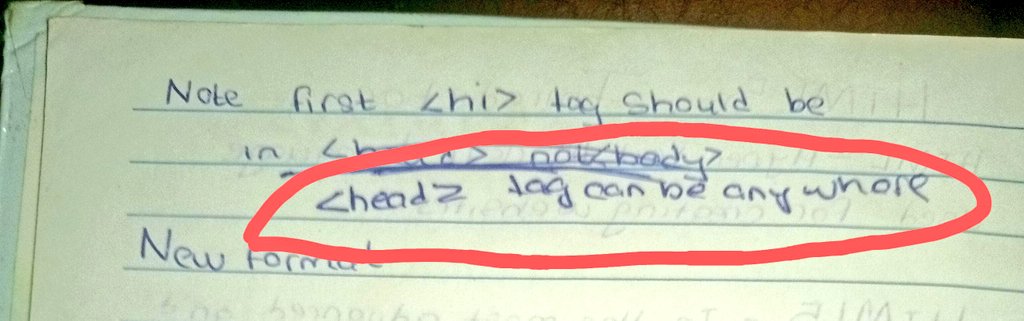 Note first <h1> tag should be
in <head> not <body>
<head> tag can be any where
New format